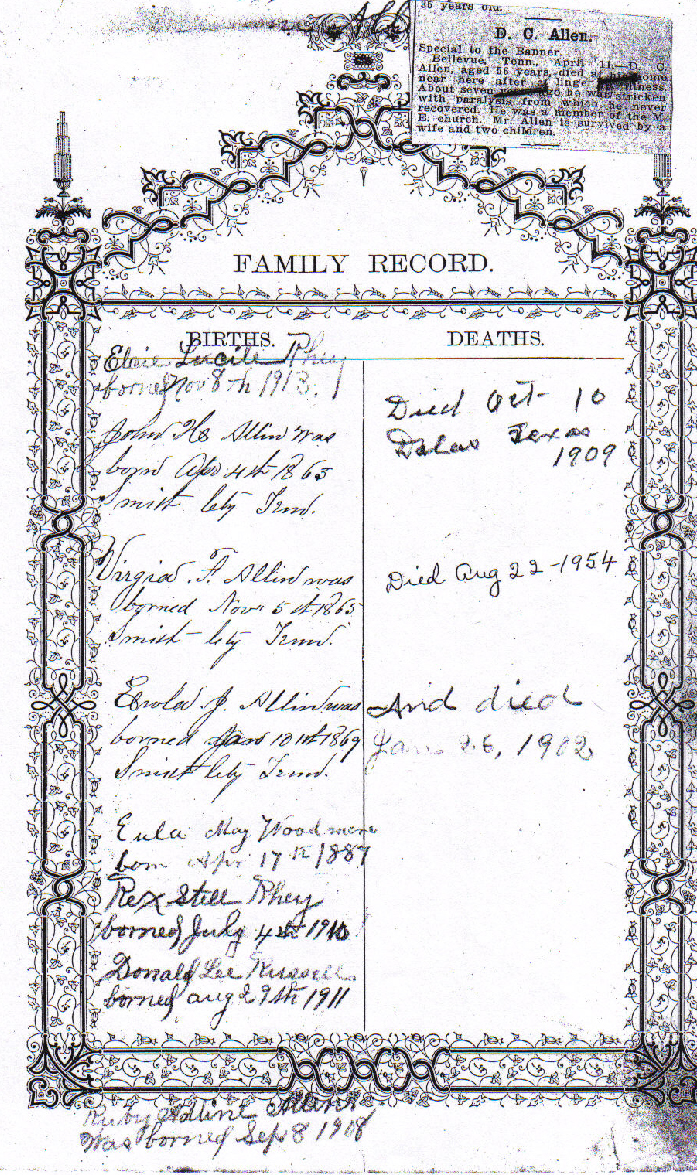 36 years old.
D. C. Allen.
Special to the Banner.
Bellevue, Tenn., April 11.—D. C.
Allen, aged 56 years, died
near here after illness.
About seven ago he was stricken
with paralysis from which he never
recovered. He was a member of the M.
E. church. Mr. Allen is survived by a
wife and two children.
FAMILY RECORD.
BIRTHS. DEATHS.
Elsie Lucile Rhey
borned nov 8th 1913.
John H. Allin was
born Apr 4th 1863
Smith Cty Tenn.
Died Oct- 10
Dalas Texas
1909
Virgia F. Allin was
borned Nov 5th 1865
Smith Cty Tenn.
Died Aug 22-1954
J. Allin was
borned Jan 10th 1869
Smith Cty Tenn.
And died
Jan 26, 1902
Eula May Woodmore
born Apr 17th 1887
Rex Still Rhey
borned July 4th 1910
Donald Lee Russell
borned aug 29th 1911
Ruby Adline Allin
Was borned Sep 8 1908